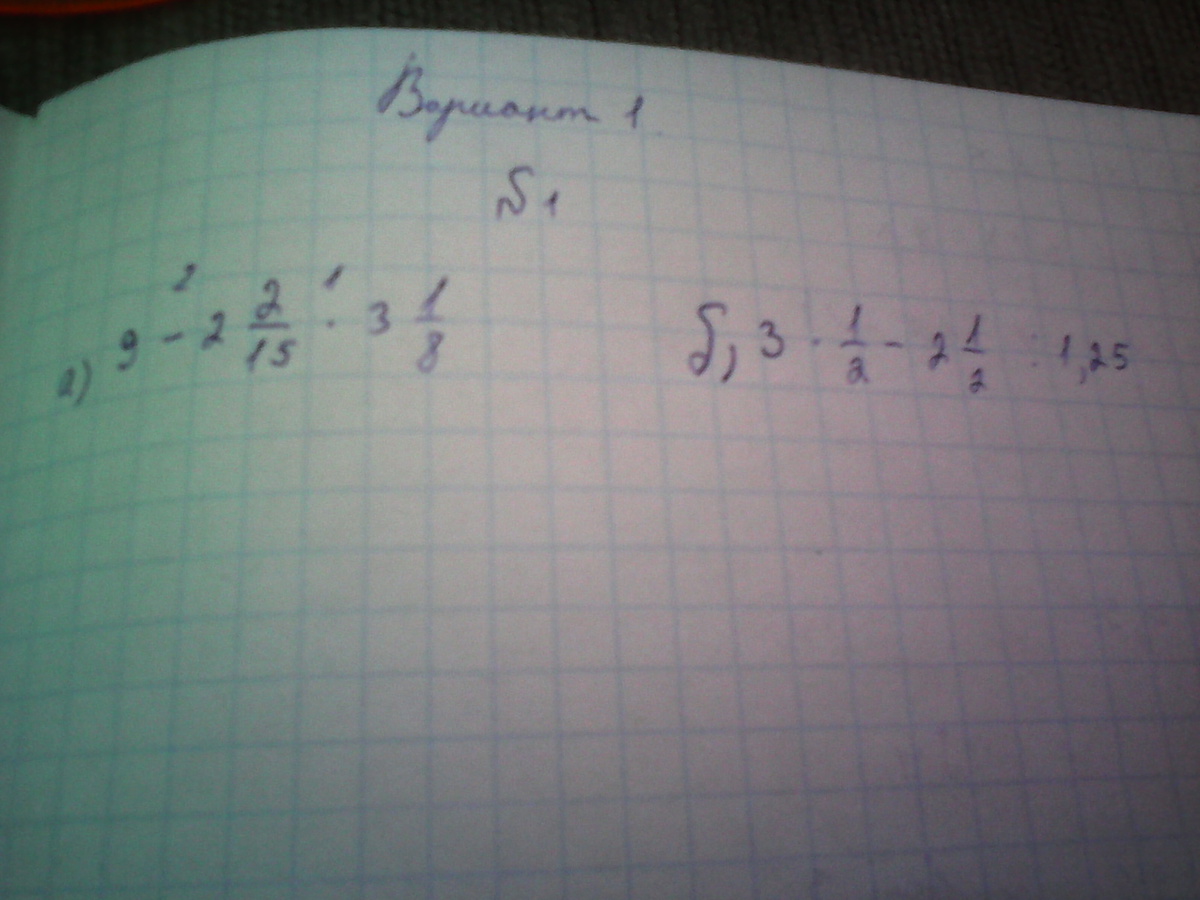 Вариант 1
№1
а) 9 - 2 2/15 · 3 1/8
б, 3 · 1/2 - 2 1/2 : 1,25